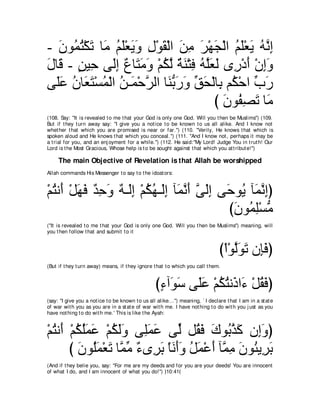 - إِنَّهُ يَعْلَمُ الْجَهْرَ مِنَ الْقَوْلِ وَيَعْلَمُ مَا تَكْتُمُونَ -
وَإِنْ أَدْرِى لَعَلَّهُ فِتْنَةٌ لَّكُمْ وَمَتَاعٌ إِلَى حِينٍ - قَالَ
رَبِّ احْكُم بِالْحَقِّ وَرَبُّنَا الرَّحْمَـنُ الْمُسْتَعَانُ عَلَى
مَا تَصِفُونَ )
(108. Say: "It is revealed to me that your God is only one God. Will you then be Muslims'') (109.
But if they turn away say: "I give you a notice to be known to us all alike. And I know not
whether that which you are promised is near or far.'') (110. "Verily, He knows that which is
spoken aloud and He knows that which you conceal.'') (111. "And I know not, perhaps it may be
a trial for you, and an enjoyment for a while.'') (112. He said:"My Lord! Judge You in truth! Our
Lord is the Most Gracious, Whose help is to be sought against that which you attribute!'')
The main Objective of Revelation is that Allah be worshipped
Allah commands His Messenger to say to the idolators:
(إِنَّمَآ يُوحَى إِلَىَّ أَنَّمَآ إِلَـهُكُمْ إِلَـهٌ وَحِدٌ فَهَلْ أَنتُمْ
مُّسْلِمُونَ)
("It is revealed to me that your God is only one God. Will you then be Muslims'') meaning, will
you then follow that and submit to it
(فَإِن تَوَلَّوْاْ)
(But if they turn away) means, if they ignore that to which you call them.
(فَقُلْ ءَاذَنتُكُمْ عَلَى سَوَآءٍ)
(say: "I give you a notice to be known to us all alike...'') meaning, `I declare that I am in a state
of war with you as you are in a state of war with me. I have nothing to do with you just as you
have nothing to do with me.' This is like the Ayah:
(وَإِن كَذَّبُوكَ فَقُل لِّى عَمَلِى وَلَكُمْ عَمَلُكُمْ أَنتُمْ
بَرِيئُونَ مِمَّآ أَعْمَلُ وَأَنَاْ بَرِىءٌ مِّمَّا تَعْمَلُونَ )
(And if they belie you, say: "For me are my deeds and for you are your deeds! You are innocent
of what I do, and I am innocent of what you do!'') (10:41)